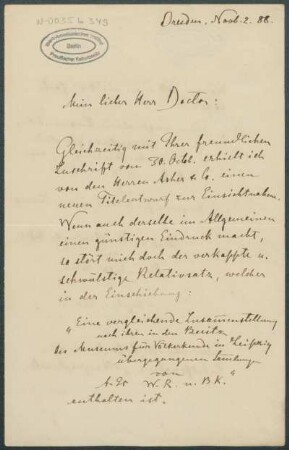 N-0035 b 349
Ibero-Amerikanisches Institut
Berlin
Preußischer Kulturbesitz
Dresden, Novb. 2. 88.
Mein lieber Herr Doctor:
Gleichzeitig mit Ihrer freundlichen
Zuschrift vom 30. Octb. erhielt ich
von den Herren Asher & Co. einen
neuen Titelentwurf zur Einsichtnahme.
Wenn auch derselbe im Allgemeinen
einen günstigen Eindruck macht,
so stört mich doch der verkappte u.
schwülstige Relativsatz, welcher
in der Einschiebung:
"Eine vergleichende Zusammenstellung
nach ihren in den Besitz
des Museums für Völkerkunde in Leipzig
übergegangenen Sammlungen
von
A. St. W. R. u. B K."
enthalten ist.